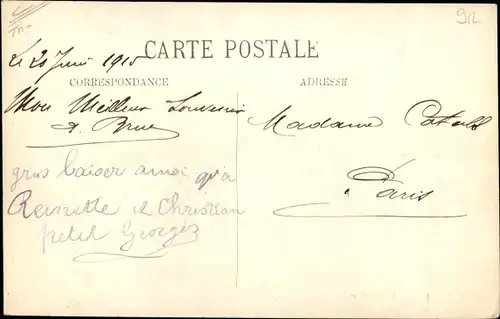 912
CARTE POSTALE
Le 20 Juin 1915
CORRESPONDANCE
ADRESSE
Mon Meilleur Souvenir
Madame
gros baiser ainsi qu'a
à Paris
et Christian
petit